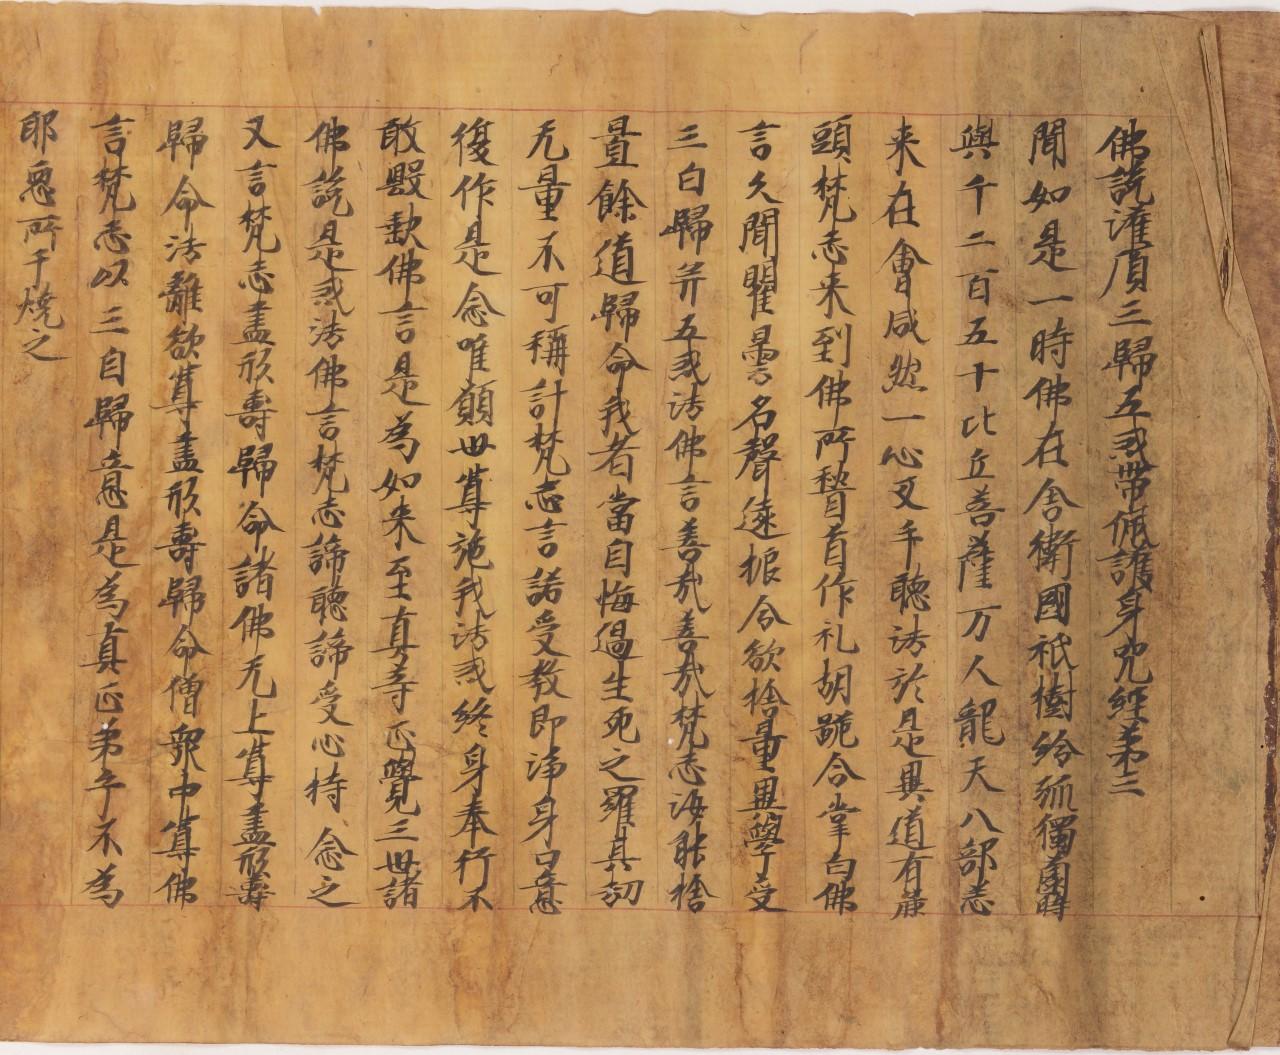 佛說灌頂三歸五戒帶佩護身呪經第三
聞如是一時佛在舍衛國祇樹給孤獨園時
與千二百五十比丘菩薩万人龍天八部悉
来在會咸然一心叉手聽法於是異道有鹿
頭梵志来到佛所稽首作礼胡跪合掌白佛
言久聞瞿曇名聲遠振今欲捨置異學受
三自歸并五戒法佛言善哉善哉梵志汝能捨
置餘道歸命我者當自悔過生死之羅其劫
无量不可稱計梵志言諾受教即淨身口意
復作是念唯願世尊施我法戒終身奉行不
敢毀缺佛言是為如来至真等正覺三世諸
佛說是戒法佛言梵志諦聽諦受心持念之
又言梵志盡形壽歸命諸佛无上尊盡形壽
歸命法離欲尊盡形壽歸命僧眾中尊佛
言梵志以三自歸意是為真正弟子不為
耶惡所干嬈之